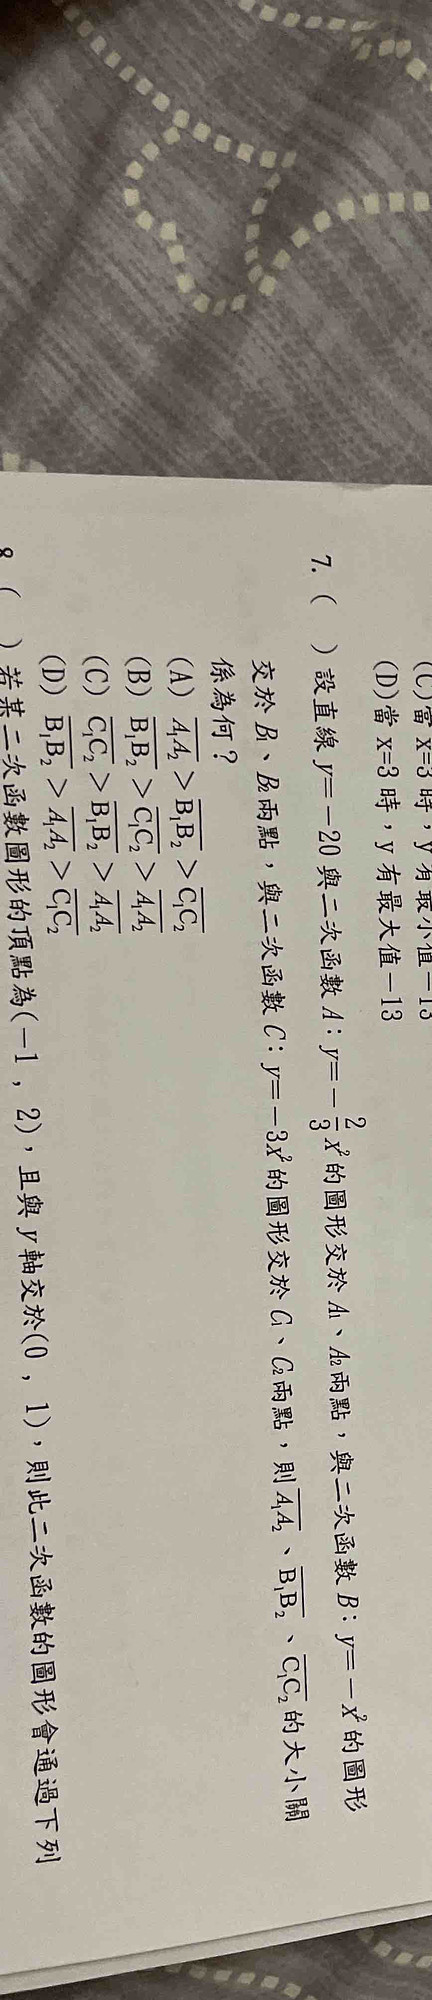 (C)當 x=3 時，y 有最小值－13
(D)當 x=3 時，y 有最大值－13
7.（　）設直線 y=－20 與二次函數 A：y=－\frac{2}{3}x²的圖形交於 A₁、A₂兩點，與二次函數 B：y=－x²的圖形
交於 B₁、B₂兩點，與二次函數 C：y=－3x²的圖形交於 C₁、C₂兩點，則\overline{A₁A₂}、\overline{B₁B₂}、\overline{C₁C₂}的大小關
係為何？
(A) \overline{A₁A₂}＞\overline{B₁B₂}＞\overline{C₁C₂}
(B) \overline{B₁B₂}＞\overline{C₁C₂}＞\overline{A₁A₂}
(C) \overline{C₁C₂}＞\overline{B₁B₂}＞\overline{A₁A₂}
(D) \overline{B₁B₂}＞\overline{A₁A₂}＞\overline{C₁C₂}
8（　）若某二次函數圖形的頂點為(－1，2)，且與 y 軸交於(0，1)，則此二次函數的圖形會通過下列